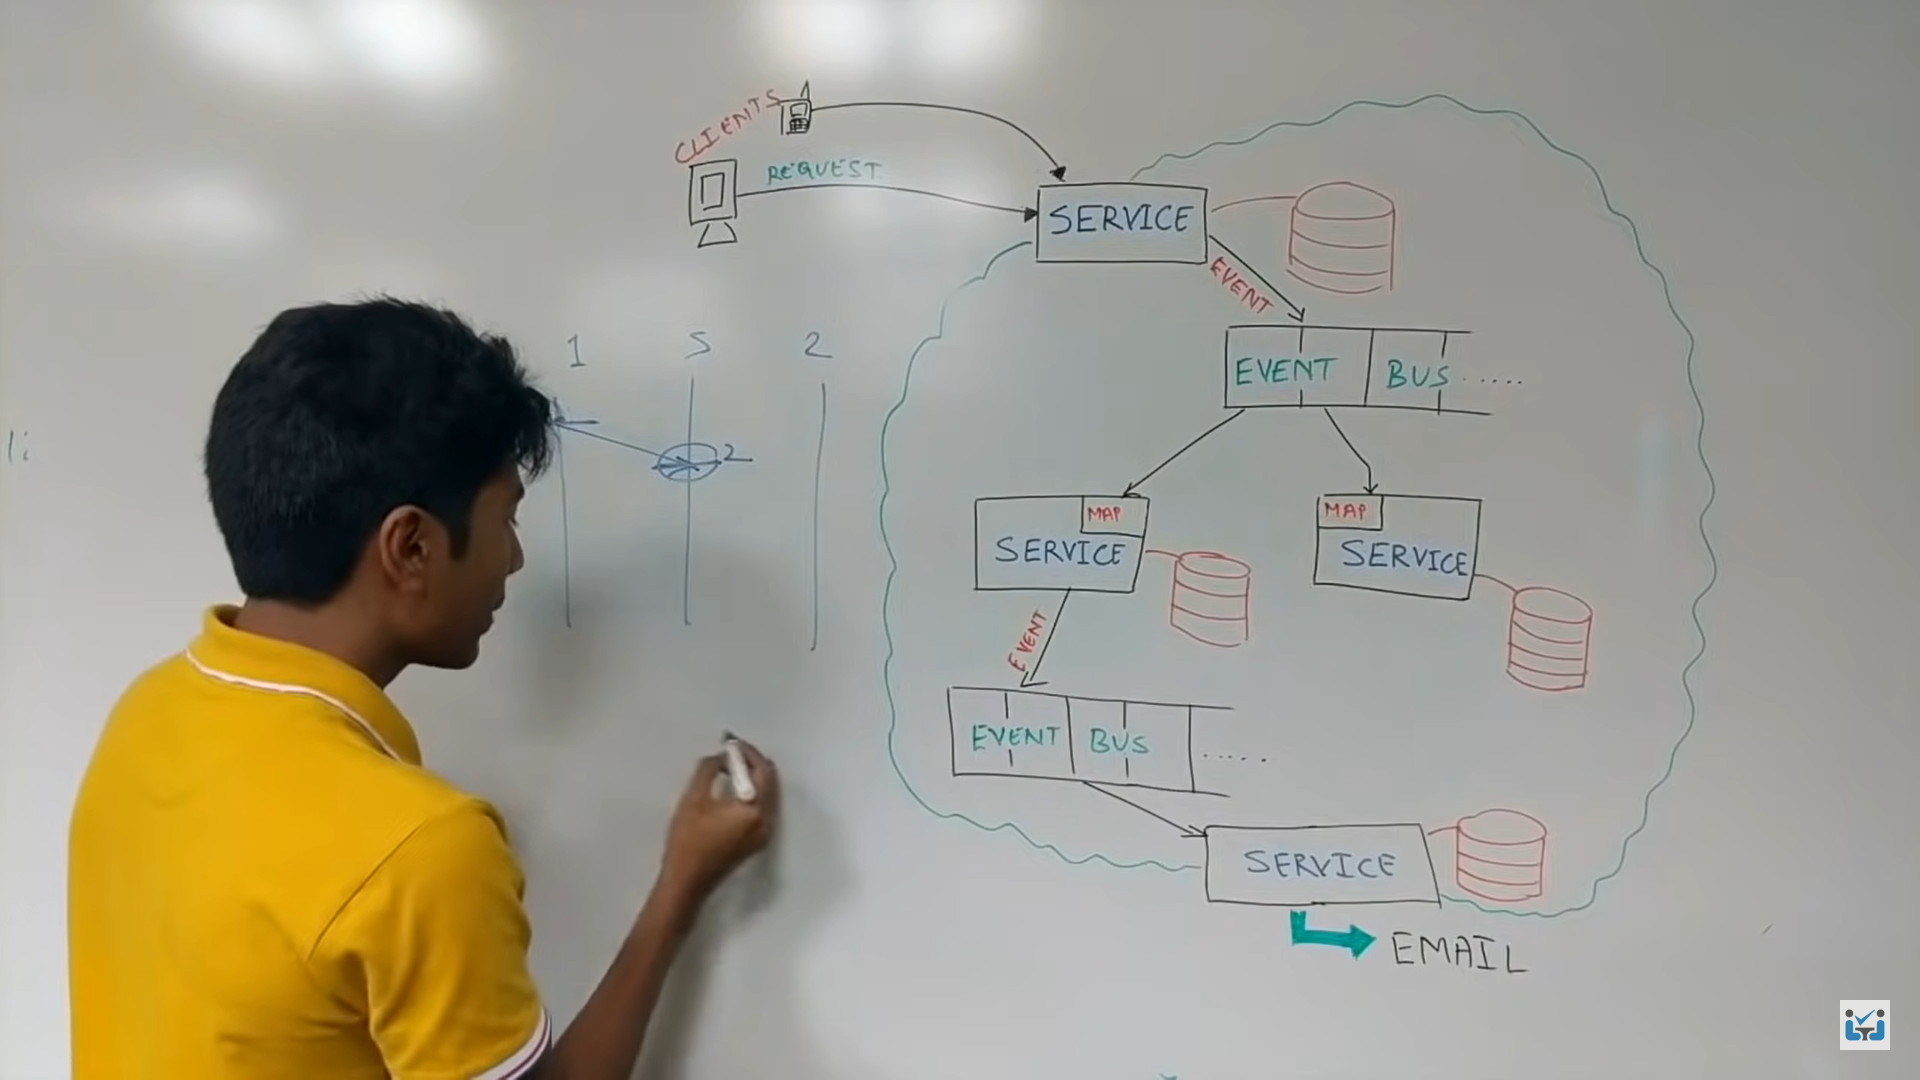 CLIENTS
REQUEST
SERVICE
EVENT
EVENT BUS .....
1 S 2
2
MAP
SERVICE
MAP
SERVICE
EVENT
EVENT BUS .....
SERVICE
EMAIL